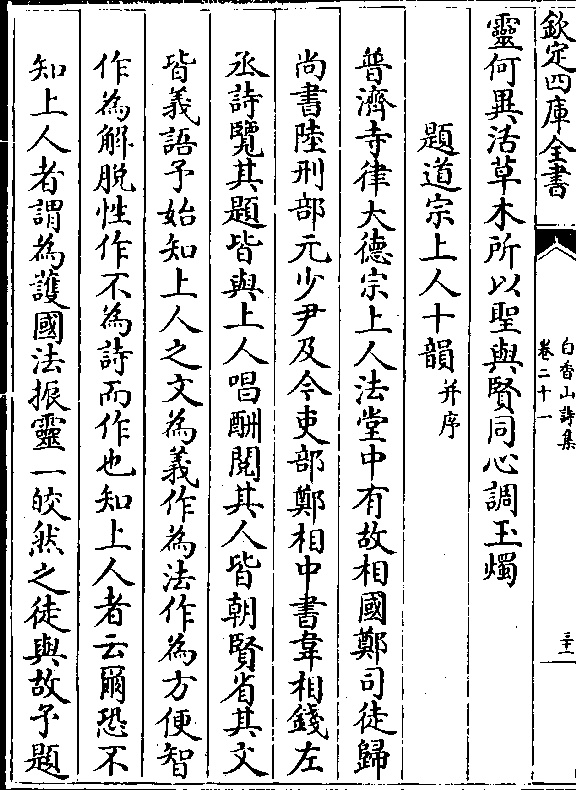 欽定四庫全書
白香山詩集
卷二十一
三十一
靈何異活草木所以聖與賢同心調玉燭
題道宗上人十韻并序
普濟寺律大德宗上人法堂中有故相國鄭司徒歸
尚書陸刑部元少尹及今吏部鄭相中書韋相錢左
丞詩覽其題皆與上人唱酬閱其人皆朝賢省其文
皆義語予始知上人之文為義作為法作為方便智
作為解脫性作不為詩而作也知上人者云爾恐不
知上人者謂為護國法振靈一皎然之徒與故予題